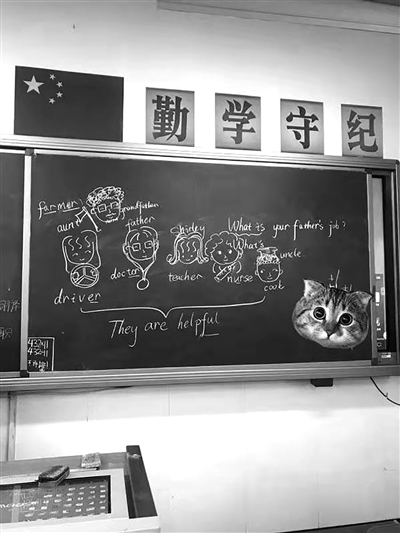 勤学守纪
farmer
grandfather
aunt
father
Shirley
What is your father's job?
What's
uncle
doctor
teacher
nurse
cook
driver
They are helpful
43241
43241